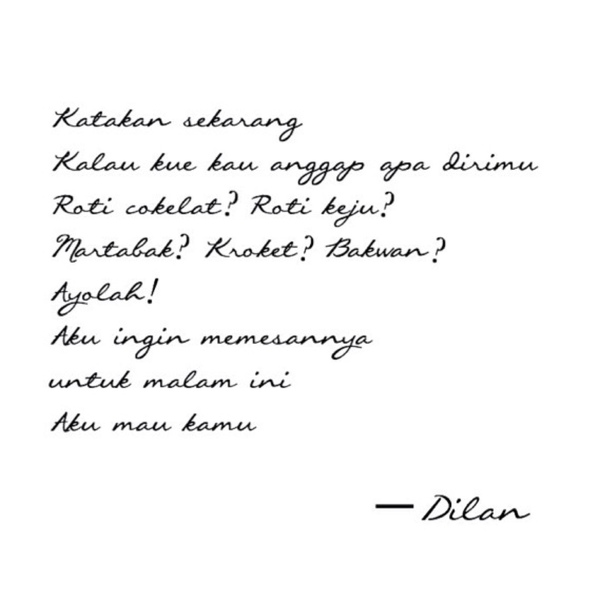 Katakan sekarang
Kalau kue kau anggap apa dirimu
Roti cokelat? Roti keju?
Martabak? Kroket? Bakwan?
Ayolah!
Aku ingin memesannya
untuk malam ini
Aku mau kamu
— Dilan